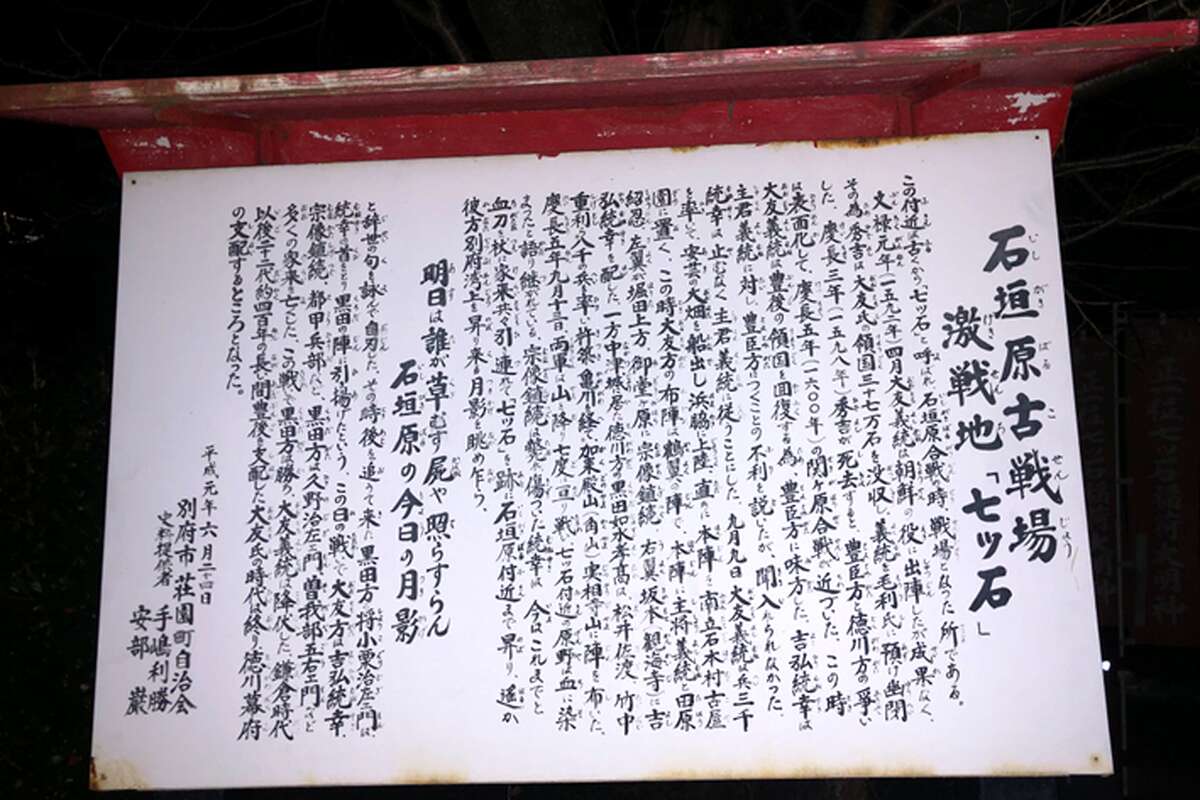 石垣原古戦場
激戦地「七ッ石」
この付近は古くから「七ッ石」と呼ばれ石垣原合戦の時、戦場となった所である。
文禄元年(一五九二年)四月大友義統は朝鮮の役に出陣したが成果なく、
その為、秀吉は大友氏の領国三十七万石を没収し、義統を毛利氏に預け幽閉
した。慶長三年(一五九八年)秀吉が死去すると、豊臣方と徳川方の争い
は表面化して、慶長五年(一六〇〇年)の関ヶ原合戦が近づした。この時
大友義統は豊後の領国を回復する為、豊臣方に味方した。吉弘統幸は
主君義統に対し、豊臣方につくことの不利を説いたが、聞入れられなかった、
統幸は止むなく主君義統に従うことにした。九月九日大友義統は兵三千
を率して、安芸の大畑を船出し浜脇に上陸、直に本陣を南立石本村古屋
園に置く、この時大友方の布陣は鶴翼の陣で、本陣に主将義統と田原
紹忍、左翼が堀田上方、御堂ヶ原に宗像鎮統、右翼坂本(観海寺)に吉
弘統幸を配した。一方中津城に居た徳川方の黒田如水孝高は、松井佐渡、竹中
重利の八千の兵を率い、杵築、亀川を経て加来殿山(角山)実相寺山に陣を布いた、
慶長五年九月十三日、両軍は山を降り七度に亘り戦い七ッ石付近の原野は血に染
まったと語り継がれている。宗像鎮統の勢が傷つた統幸は、今はこれまでと
血刀を杖に家来共を引き連れて「七ッ石」を跡に石垣原付近まで昇り、遥か
彼方別府湾上を昇り来る月影を眺め乍ら、
明日は誰が草むす屍や照らすらん
石垣原の今日の月影
と辞世の句を詠んで自刃した。その時後を追って来た黒田方の将小栗治左ェ門は
統幸の首をとり黒田の陣に引揚げたという、この日の戦いで、大友方は吉弘統幸、
宗像鎮統、都甲兵部ハじ、黒田方は久野治左ェ門、曽我部五右ェ門など
多くの家来を亡した、この戦いで黒田方が勝ち、大友義統は降伏した。鎌倉時代
以後二十二代約四百年の長い間豊後を支配した大友氏の時代は終り徳川幕府
の支配するところとなった。
平成元年六月二十四日
別府市荘園町自治会
史料提供者 手嶋利勝
安部巌